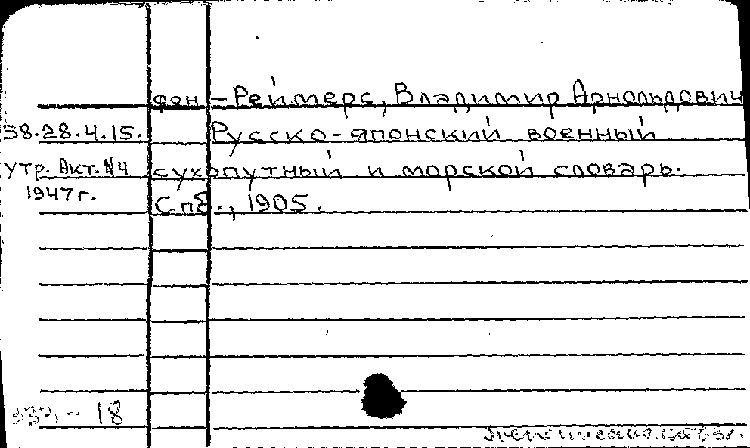 фон-Реймерс, Владимир Арнольдович
38.28.4.15. Русско-японский военный
утр. Акт. №4 сухопутный и морской словарь.
1947г. Спб., 1905.
18